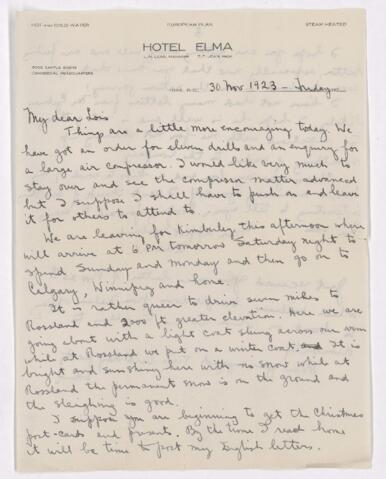 HOT AND COLD WATER
EUROPEAN PLAN
STEAM HEATED
HOTEL ELMA
GOOD SAMPLE ROOMS
COMMERCIAL HEADQUARTERS
TRAIL, B.C. 30 Nov 1923 - Friday
My dear Lois
Things are a little more encouraging today. We
have got an order for eleven drills and an enquiry for
a large air compressor. I would like very much to
stay over and see the compressor matter advanced
but I suppose I shall have to push on and leave
it for others to attend to.
We are leaving for Kimberley this afternoon where
will arrive at 6 PM tomorrow Saturday night to
spend Sunday and Monday and then go on to
Calgary, Winnipeg and home.
It is rather queer to drive seven miles to
Rossland and 2000 ft greater elevation. Here we are
going about with a light coat slung across our arm
while at Rossland we put on a winter coat. It is
bright and sunshiny here with no snow while at
Rossland the permanent snow is on the ground and
the sleighing is good.
I suppose you are beginning to get the Christmas
post-cards and presents. By the time I reach home
it will be time to post my English letters.